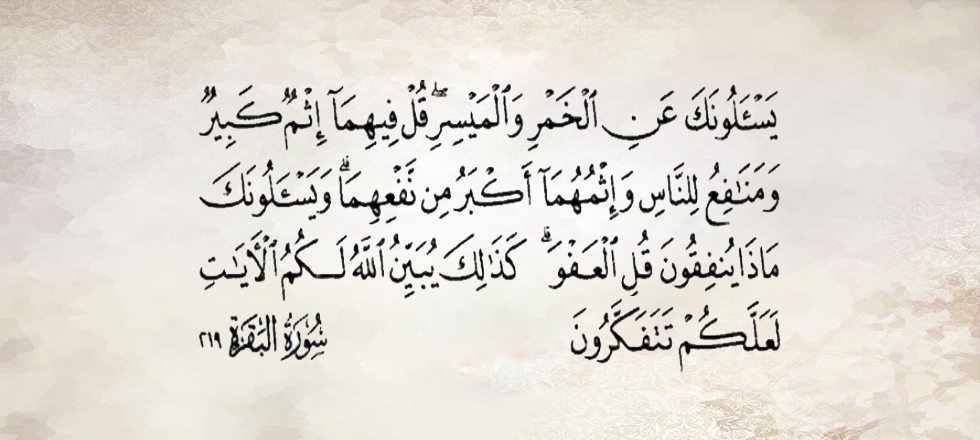 يَسْـَٔلُونَكَ عَنِ ٱلْخَمْرِ وَٱلْمَيْسِرِ ۖ قُلْ فِيهِمَآ إِثْمٌ كَبِيرٌ
وَمَنَـٰفِعُ لِلنَّاسِ وَإِثْمُهُمَآ أَكْبَرُ مِن نَّفْعِهِمَا ۗ وَيَسْـَٔلُونَكَ
مَاذَا يُنفِقُونَ قُلِ ٱلْعَفْوَ ۗ كَذَٰلِكَ يُبَيِّنُ ٱللَّهُ لَكُمُ ٱلْأَيَـٰتِ
لَعَلَّكُمْ تَتَفَكَّرُونَ سُورَةُ البَقَرَةِ ٢١٩